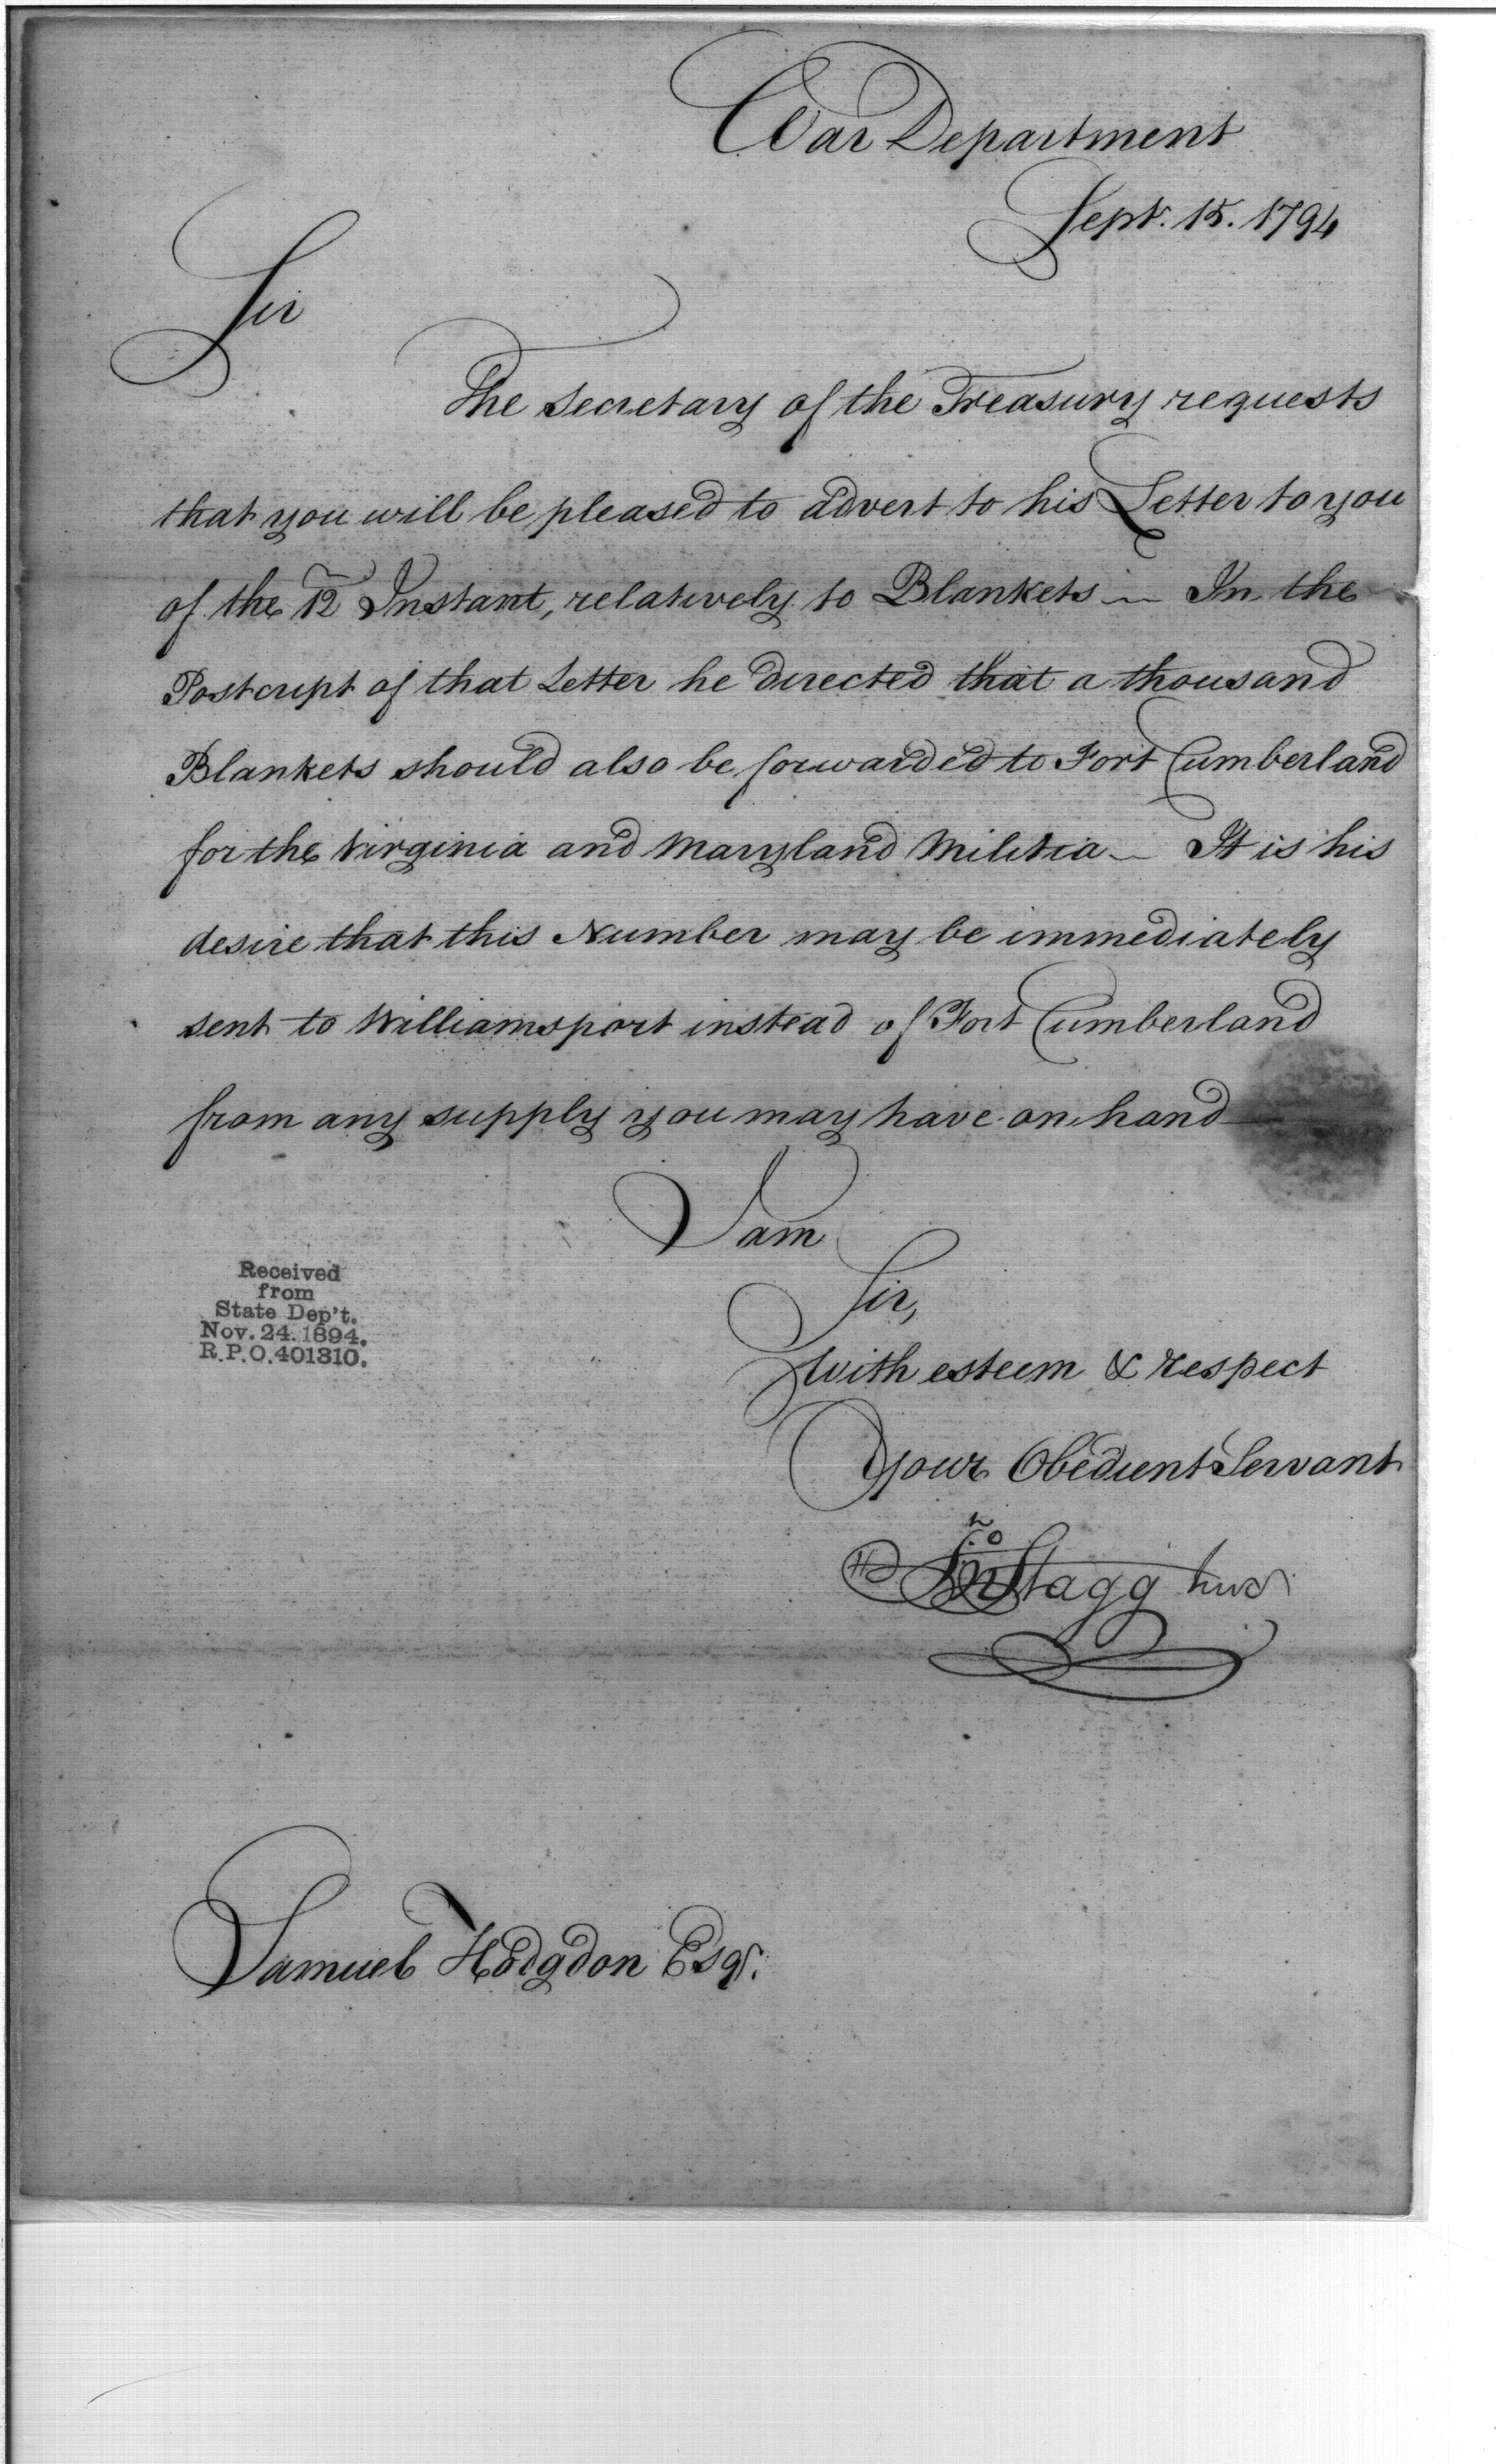 War Department
Sept. 15. 1794
Sir
The Secretary of the Treasury requests
that you will be pleased to advert to his Letter to you
of the 12 Instant, relatively to Blankets — In the
Postcript of that Letter he directed that a thousand
Blankets should also be forwarded to Fort Cumberland
for the Virginia and Maryland Militia — It is his
desire that this Number may be immediately
sent to Williamsport instead of Fort Cumberland
from any supply you may have on hand —
I am
Sir,
with esteem & respect
Your Obedient Servant
Jno Stagg Junr
Received
from
State Dep't.
Nov. 24. 1894.
R.P.O. 401310.
Samuel Hodgdon Esqr.